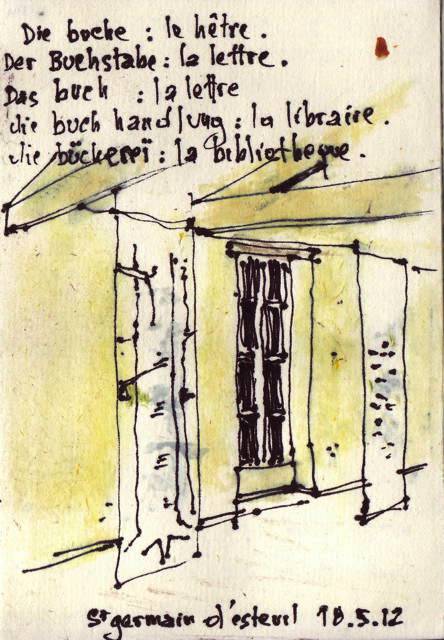 Die boche : le hêtre.
Der Buchstabe : la lettre.
Das buch : la lettre
die buch handlung : la libraire.
die bückereï : la bibliotheque.
St germain d'esteuil 18.5.12